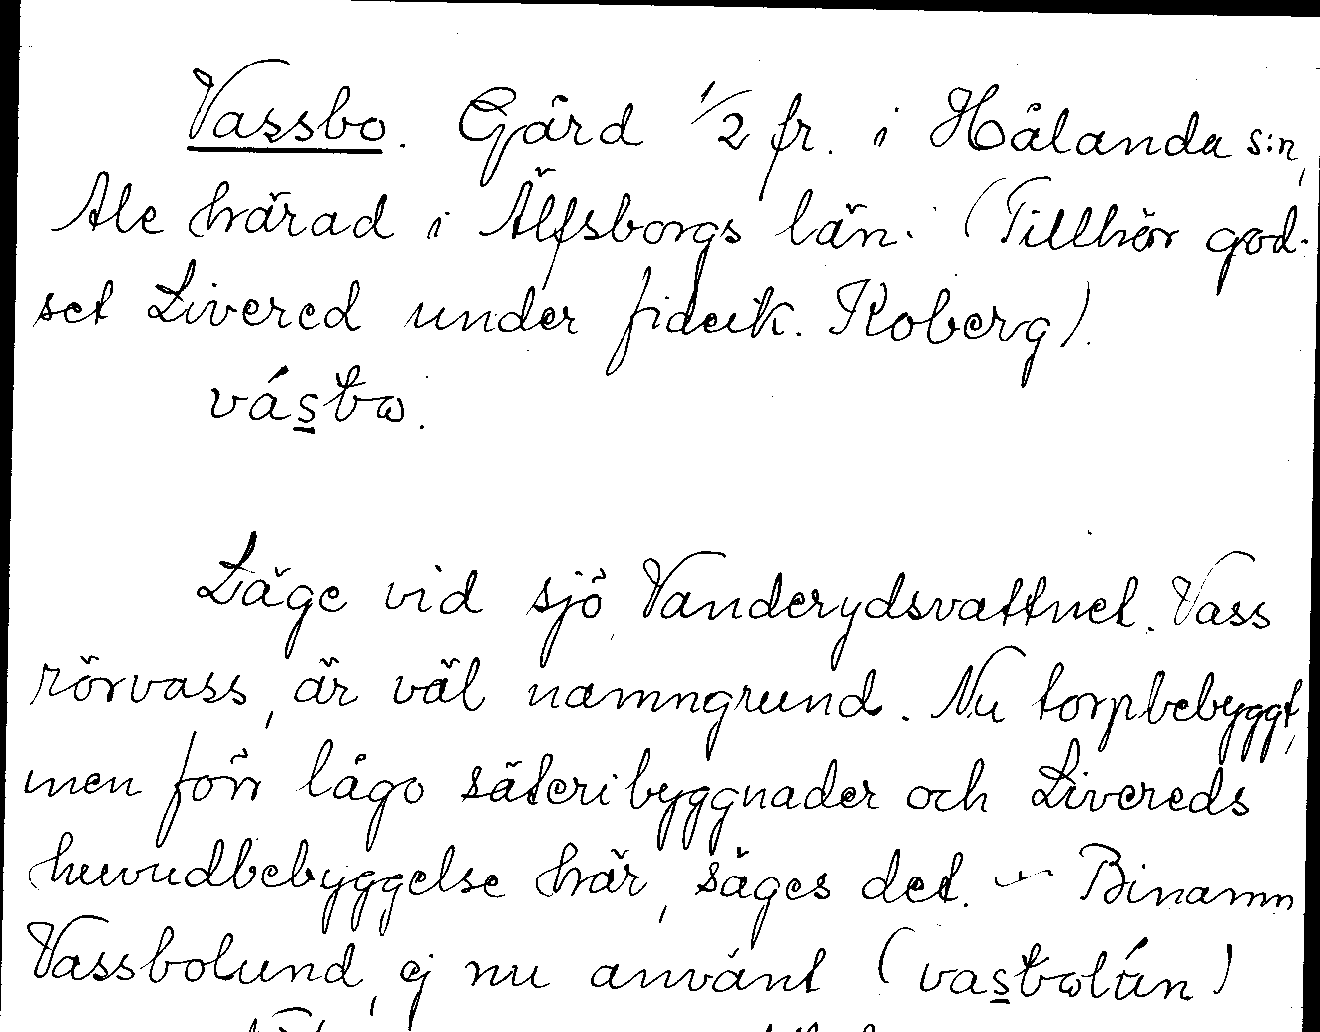 Vassbo. Gård 1/2 fr. i Hålanda s:n,
Ale härad i Älfsborgs län. (Tillhör god-
set Livered under fideik. Koberg).
vásbω.
Läge vid sjö, Vanderydsvattnet. Vass
rörvass, är väl namngrund. Nu torpbebyggt,
men förr lågo säteribyggnader och Livereds
huvudbebyggelse här, säges det. — Binamn
Vassbolund, ej nu använt (vasbωlún)